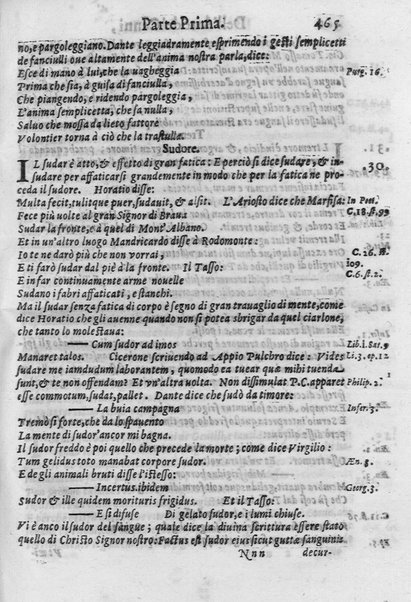 Parte Prima. 465
no, e pargoleggiano. Dante leggiadramente esprimendo i gesti semplicetti
de fanciulli oue altamente dell'anima nostra parla, dice:
Esce di mano à lui, che la uagheggia Purg. 16.
Prima che sia, à guisa di fanciulla,
Che piangendo, e ridendo pargoleggia,
L'anima semplicetta, che sa nulla,
Saluo che mossa da lieto fattore
Volontier torna à ciò che la trastulla.
Sudore.
IL sudar è atto, & effetto di gran fatica: E perciò si dice sudare, & in- 30.
sudare per affaticarsi grandemente in modo che per la fatica ne pro-
ceda il sudore. Horatio disse:
Multa fecit, tulitque puer, sudauit, & alsit. L'Ariosto dice che Marfisa: In Poet.
Fece più uolte al gran Signor di Braua C. 18. st. 99
Sudar la fronte, e à quel di Mont'Albano.
Et in un'altro luogo Mandricardo disse à Rodomonte:
Io te ne darò più che non vorrai, C. 26. st.
E ti farò sudar dal piè à la fronte. Il Tasso: 109.
E in far continuamente arme nouelle C. 6. st. 2.
Sudano i fabri affaticati, e stanchi.
Ma il sudar senza fatica di corpo è segno di gran trauaglio di mente, come
dice Horatio che gli auenne quando non si potea sbrigar da quel ciarlone,
che tanto lo molestaua:
—— Cum sudor ad imos Lib. 1. Sat. 9
Manaret talos. Cicerone scriuendo ad Appio Pulchro dice: Vides Li. 3. ep. 12
sudare me iamdudum laborantem, quomodo ea tuear quæ mihi tuenda
sunt, & te non offendam? Et un'altra uolta. Non dissimulat P.C. apparet Philip. 2.
esse commotum, sudat, pallet. Dante dice che sudò da timore:
—— La buia campagna Infer. 3.
Tremò sì forte, che da lo spauento
La mente di sudor'ancor mi bagna.
Il sudor freddo è poi quello che precede la morte; come dice Virgilio:
Tum gelidus toto manabat corpore sudor. Æn. 3.
E de gli animali bruti disse l'istesso:
—— Incertus ibidem Georg. 3.
Sudor & ille quidem morituris frigidus. Et il Tasso:
—— E si difuse Di gelato sudor, e i lumi chiuse.
Vi è anco il sudor del sangue; quale dice la diuina scrittura essere stato
quello di Christo Signor nostro: Factus est sudor eius sicut guttæ sanguinis
Nnn decur-